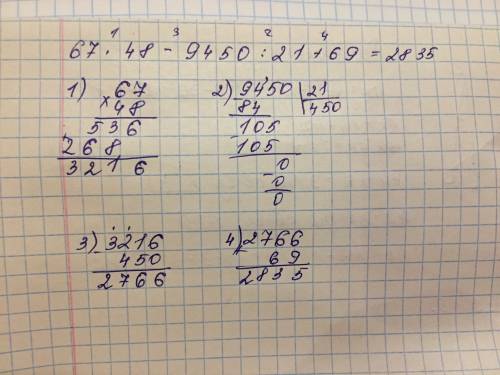 1 3 2 4
67 · 48 - 9450 : 21 + 69 = 2835
1) 67
× 48
536
268
3216
2) 9450 | 21
- 84 450
105
105
0
- 0
0
3) - 3216
450
2766
4) + 2766
69
2835